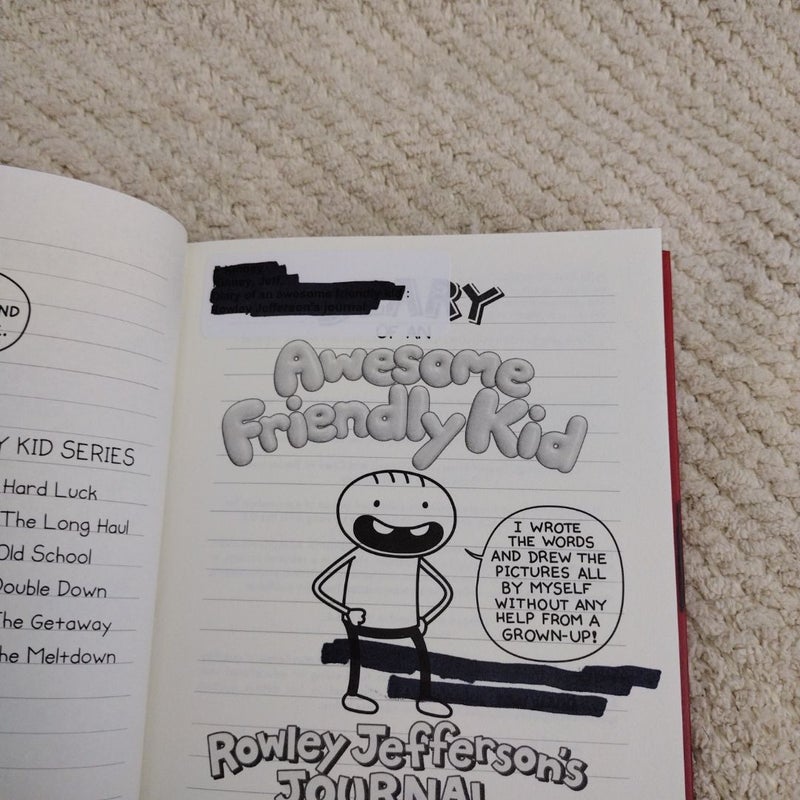 ND
Y KID SERIES
Hard Luck
The Long Haul
Old School
Double Down
The Getaway
he Meltdown
Kinney, Jeff.
Diary of an awesome friendly kid :
Rowley Jefferson's journal
ARY
OF AN
Awesome
Friendly Kid
I WROTE
THE WORDS
AND DREW THE
PICTURES ALL
BY MYSELF
WITHOUT ANY
HELP FROM A
GROWN-UP!
Rowley Jefferson's
JOURNAL